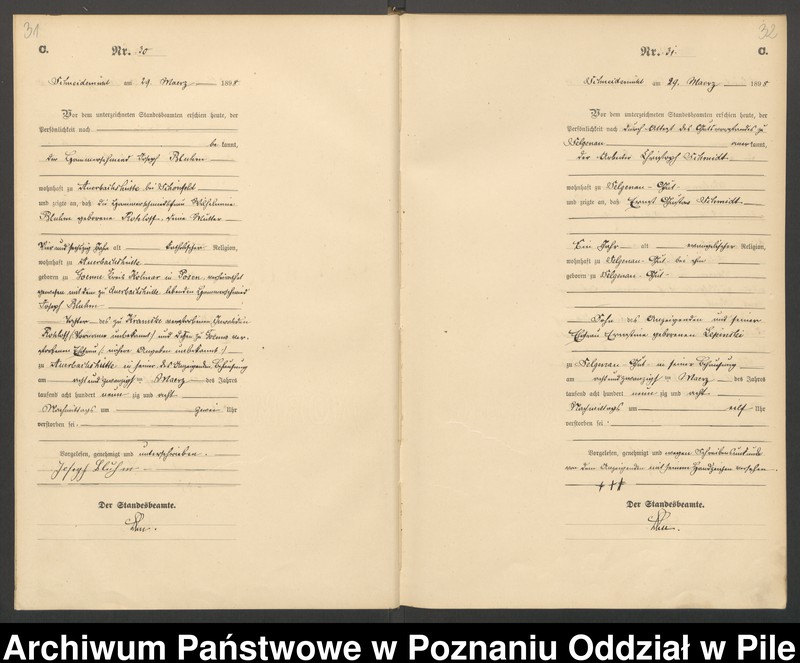 31
C.
Nr. 30
Schneidemühl am 29. Maerz 1898
Vor dem unterzeichneten Standesbeamten erschien heute, der
Persönlichkeit nach
be kannt,
der Hammerschmied Joseph Bluhm
wohnhaft zu Auerbachshütte bei Schönfeld
und zeigte an, daß die Hammerschmiedfrau Wilhelmine
Bluhm geborene Rohloff, seine Mutter
Vier und sechzig Jahr alt katholischer Religion,
wohnhaft zu Auerbachshütte
geboren zu Kreis Kolmar in Posen, verheirathet
gewesen mit dem zu Auerbachshütte lebenden Hammerschmied
Joseph Bluhm
Tochter des zu verstorbenen
Rohloff (Vorname unbekannt) und dessen zu ver-
storbenen Ehefrau (nähere Angaben unbekannt)
zu Auerbachshütte in seiner des Anzeigenden Behausung
am acht und zwanzigsten Maerz des Jahres
tausend acht hundert neun zig und acht
Nachmittags um zwei Uhr
verstorben sei.
Vorgelesen, genehmigt und unterschrieben.
Joseph Bluhm
Der Standesbeamte.
32
Nr. 31.
C.
Schneidemühl am 29. Maerz 1898
Vor dem unterzeichneten Standesbeamten erschien heute, der
Persönlichkeit nach durch Attest des Gutsvorstandes zu
Selgenau anerkannt,
der Arbeiter Christoph Schmidt
wohnhaft zu Selgenau-Gut
und zeigte an, daß Ernst Gustav Schmidt
Ein Jahr alt evangelischer Religion,
wohnhaft zu Selgenau-Gut bei ihm
geboren zu Selgenau-Gut
Sohn des Anzeigenden und seiner
Ehefrau Ernestine geborenen
zu Selgenau-Gut in seiner Behausung
am acht und zwanzigsten Maerz des Jahres
tausend acht hundert neun zig und acht
Nachmittags um elf Uhr
verstorben sei.
Vorgelesen, genehmigt und wegen Schreibensunkunde
von dem Anzeigenden mit seinem Handzeichen versehen.
+++
Der Standesbeamte.
Archiwum Państwowe w Poznaniu Oddział w Pile